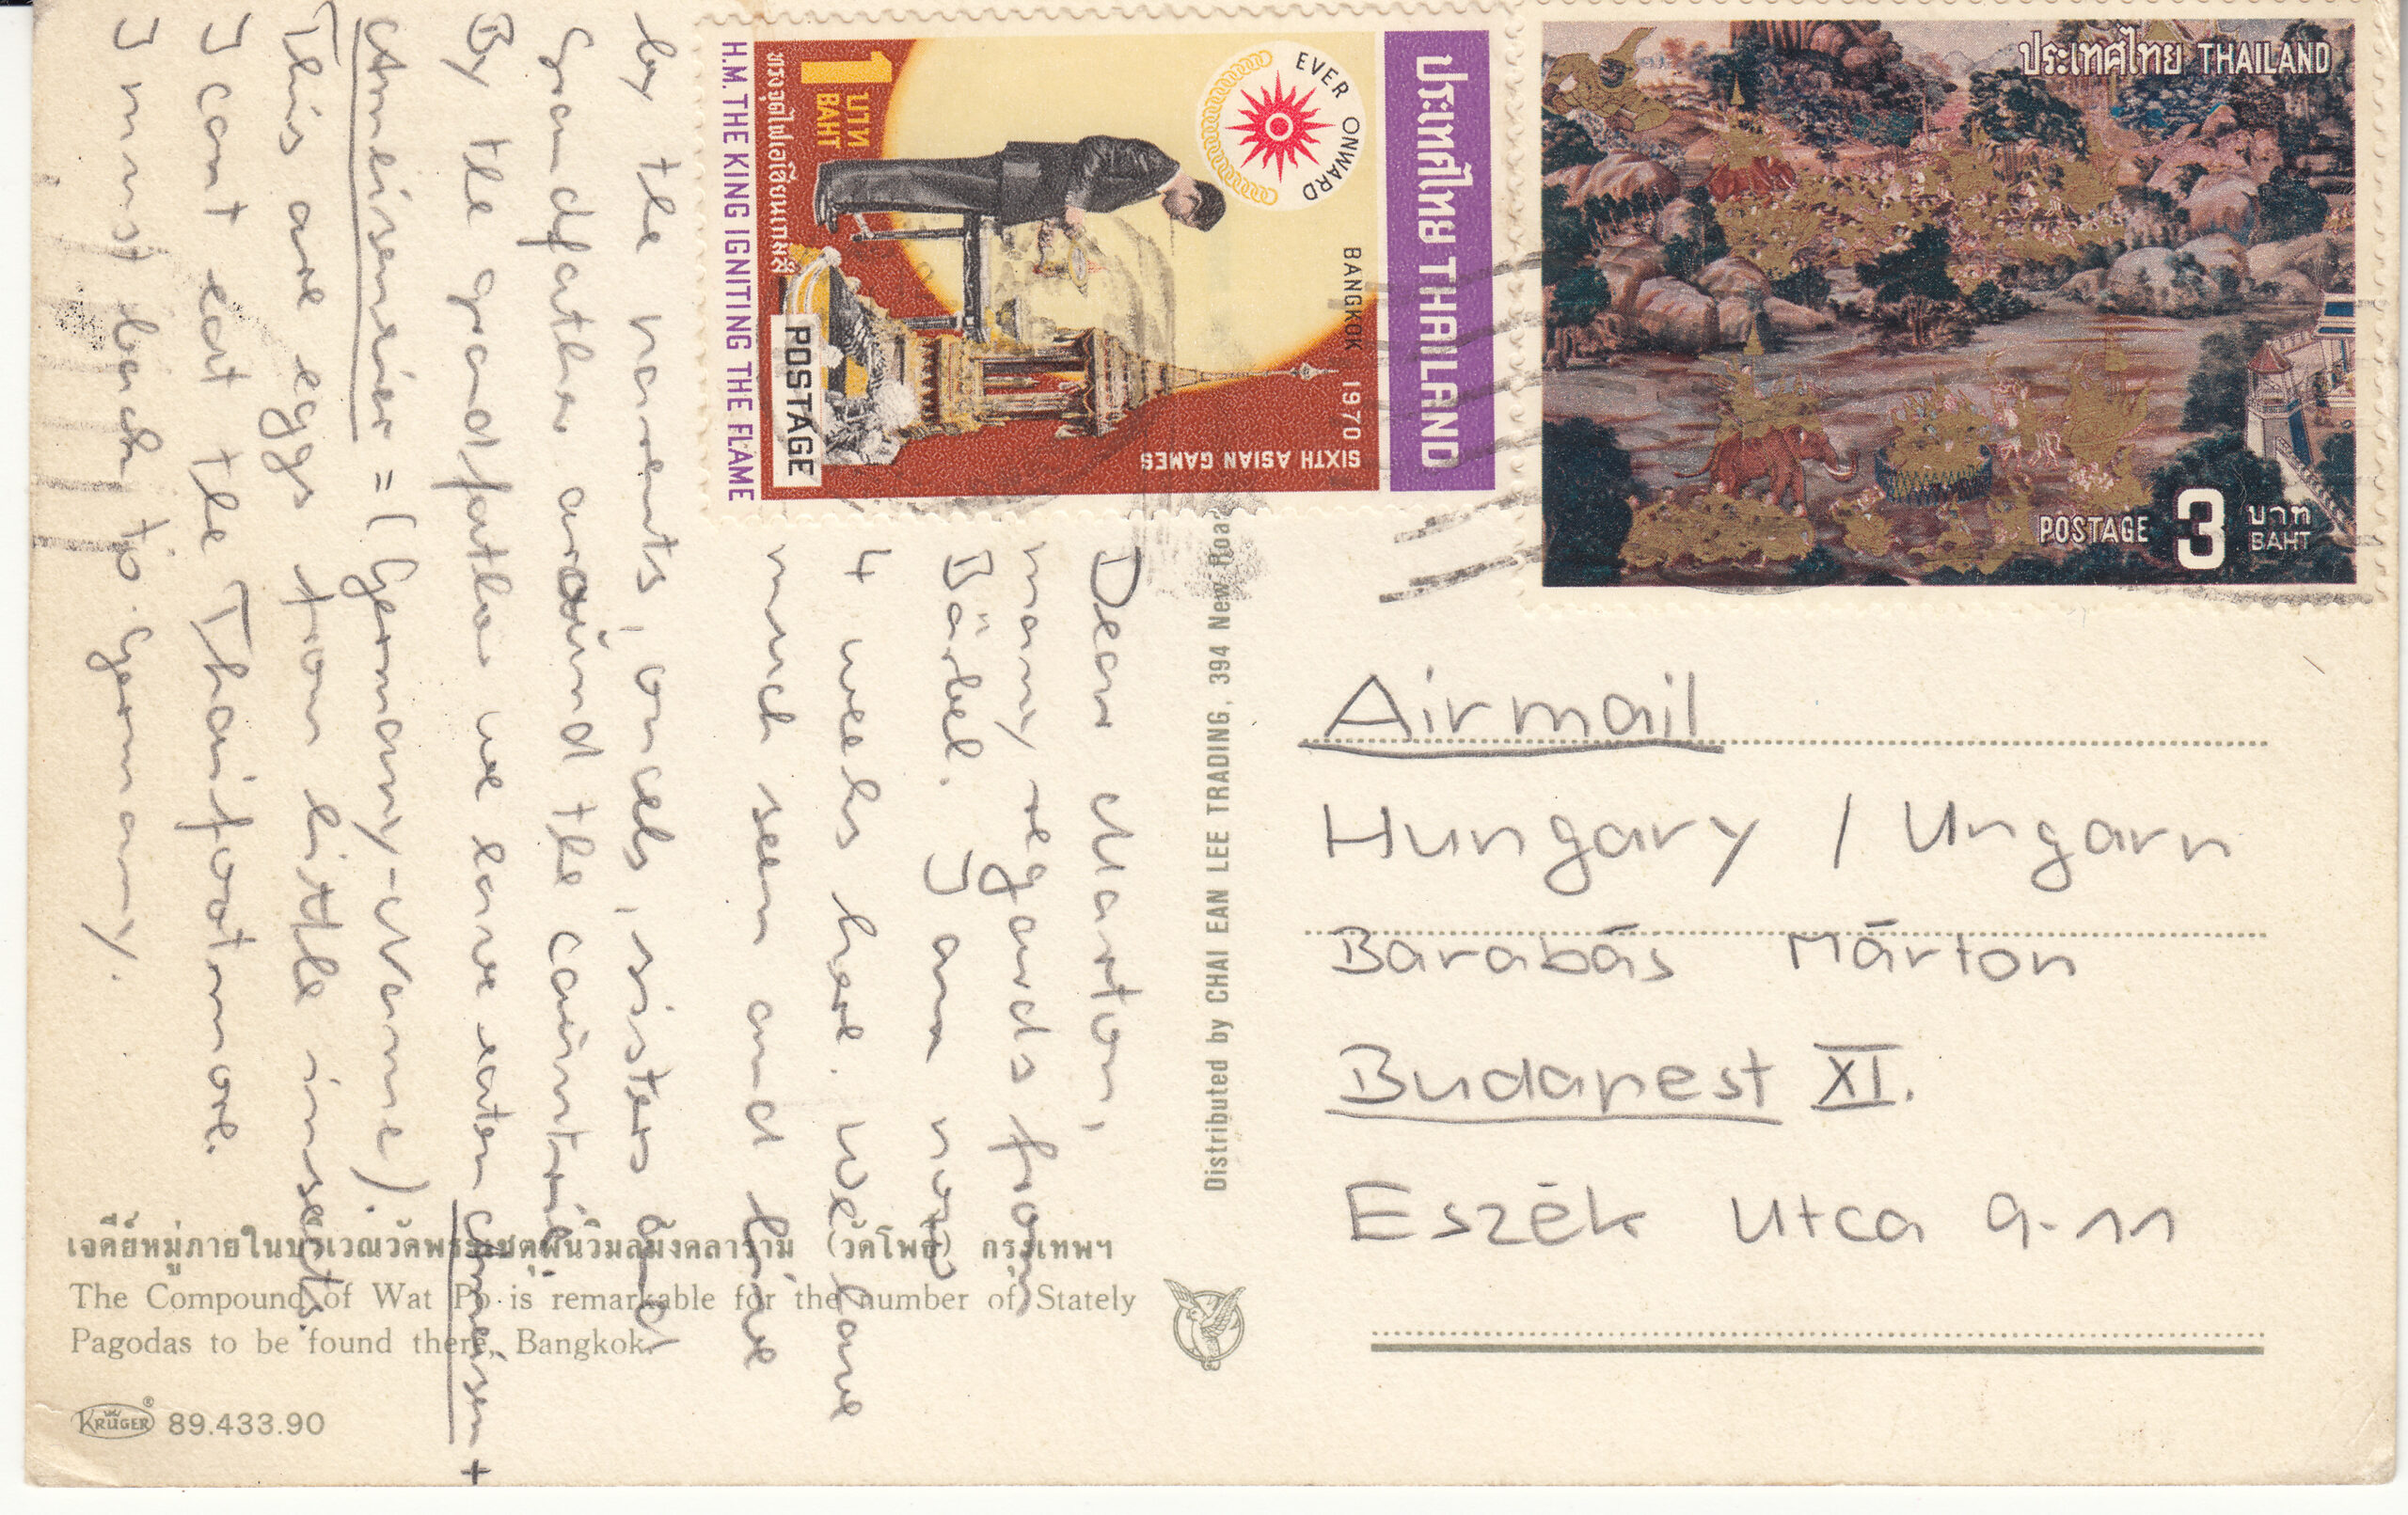 ประเทศไทย THAILAND
POSTAGE 3 บาท
BAHT
ประเทศไทย THAILAND
EVER ONWARD
BANGKOK 1970
SIXTH ASIAN GAMES
1 บาท
BAHT
POSTAGE
ทรงจุดไฟเอเชียนเกมส์
H.M. THE KING IGNITING THE FLAME
Dear Marton,
many regards from
Bärbel. I am now
4 weeks here. We have
much seen and live
by the parents, oncels, sisters and
Grandfather around the caintrie.
By the grandfather we have eaten Ameisen +
Ameiseneier = (Germany-Name).
This are eggs from little insects.
I cant eat the Thaifood more.
I must back to Germany.
Distributed by CHAI EAN LEE TRADING, 394 New Road
Airmail
Hungary / Ungarn
Barabás Márton
Budapest XI.
Eszék utca 9-11
เจดีย์หมู่ภายในบริเวณวัดพระเชตุพนวิมลมังคลาราม (วัดโพธิ์) กรุงเทพฯ
The Compound of Wat Po is remarkable for the number of Stately
Pagodas to be found there, Bangkok.
KRÜGER® 89.433.90